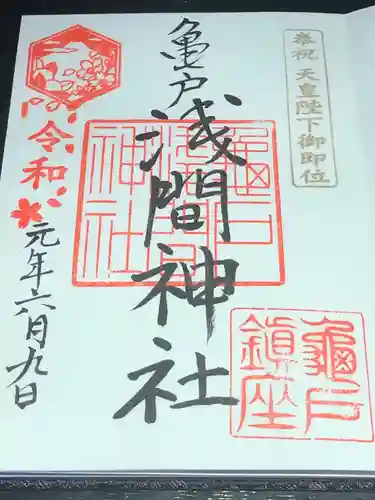 奉祝 天皇陛下御即位
亀戸
浅間神社
亀戸
浅間
神社
亀戸
鎮座
令和
元年六月九日